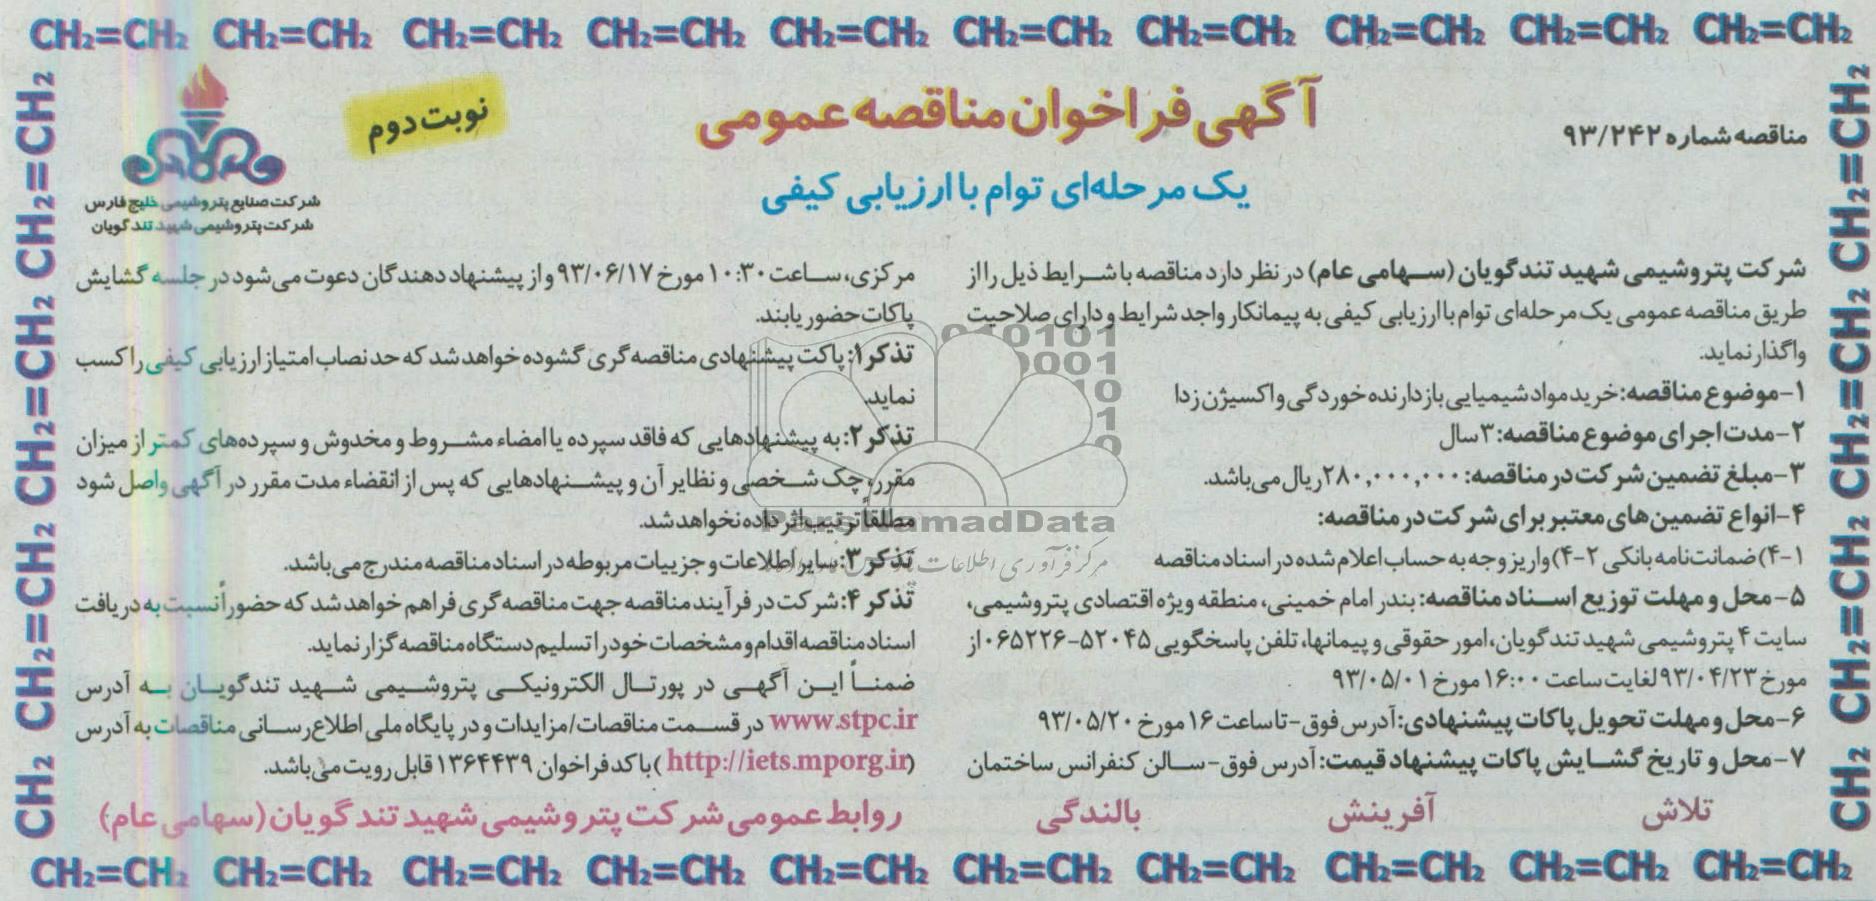 CH₂=CH₂ CH₂=CH₂ CH₂=CH₂ CH₂=CH₂ CH₂=CH₂ CH₂=CH₂ CH₂=CH₂ CH₂=CH₂ CH₂=CH₂ CH₂=CH₂
مناقصه شماره ۹۳/۲۴۲
آگهی فراخوان مناقصه عمومی
یک مرحله‌ای توام با ارزیابی کیفی
نوبت دوم
شرکت صنایع پتروشیمی خلیج فارس
شرکت پتروشیمی شهید تندگویان
شرکت پتروشیمی شهید تندگویان (سهامی عام) در نظر دارد مناقصه با شرایط ذیل را از
طریق مناقصه عمومی یک مرحله‌ای توام با ارزیابی کیفی به پیمانکار واجد شرایط و دارای صلاحیت
واگذار نماید.
۱-موضوع مناقصه: خرید مواد شیمیایی بازدارنده خوردگی و اکسیژن زدا
۲-مدت اجرای موضوع مناقصه: ۳ سال
۳-مبلغ تضمین شرکت در مناقصه: ۲۸۰,۰۰۰,۰۰۰ ریال می‌باشد.
۴-انواع تضمین‌های معتبر برای شرکت در مناقصه:
۴-۱) ضمانت‌نامه بانکی ۴-۲) واریز وجه به حساب اعلام شده در اسناد مناقصه
۵-محل و مهلت توزیع اسناد مناقصه: بندر امام خمینی، منطقه ویژه اقتصادی پتروشیمی،
سایت ۴ پتروشیمی شهید تندگویان، امور حقوقی و پیمانها، تلفن پاسخگویی ۵۲۰۴۵-۰۶۵۲۲۶ از
مورخ ۹۳/۰۴/۲۳ لغایت ساعت ۱۶:۰۰ مورخ ۹۳/۰۵/۰۱
۶-محل و مهلت تحویل پاکات پیشنهادی: آدرس فوق-تا ساعت ۱۶ مورخ ۹۳/۰۵/۲۰
۷-محل و تاریخ گشایش پاکات پیشنهاد قیمت: آدرس فوق-سالن کنفرانس ساختمان
مرکزی، ساعت ۱۰:۳۰ مورخ ۹۳/۰۶/۱۷ و از پیشنهاد دهندگان دعوت می‌شود در جلسه گشایش
پاکات حضور یابند.
تذکر ۱: پاکت پیشنهادی مناقصه گری گشوده خواهد شد که حد نصاب امتیاز ارزیابی کیفی را کسب
نماید.
تذکر ۲: به پیشنهادهایی که فاقد سپرده یا امضاء مشروط و مخدوش و سپرده‌های کمتر از میزان
مقرر، چک شخصی و نظایر آن و پیشنهادهایی که پس از انقضاء مدت مقرر در آگهی واصل شود
مطلقاً ترتیب اثر داده نخواهد شد.
تذکر ۳: سایر اطلاعات و جزییات مربوطه در اسناد مناقصه مندرج می‌باشد.
تذکر ۴: شرکت در فرآیند مناقصه جهت مناقصه گری فراهم خواهد شد که حضوراً نسبت به دریافت
اسناد مناقصه اقدام و مشخصات خود را تسلیم دستگاه مناقصه گزار نماید.
ضمناً این آگهی در پورتال الکترونیکی پتروشیمی شهید تندگویان به آدرس
www.stpc.ir در قسمت مناقصات/مزایدات و در پایگاه ملی اطلاع رسانی مناقصات به آدرس
(http://iets.mporg.ir) با کد فراخوان ۱۳۶۴۴۳۹ قابل رویت می‌باشد.
تلاش آفرینش بالندگی
روابط عمومی شرکت پتروشیمی شهید تندگویان (سهامی عام)
ParsNamadData
CH₂=CH₂ CH₂=CH₂ CH₂=CH₂ CH₂=CH₂ CH₂=CH₂ CH₂=CH₂ CH₂=CH₂ CH₂=CH₂ CH₂=CH₂ CH₂=CH₂
CH₂ CH₂=CH₂ CH₂=CH₂ CH₂=CH₂
CH₂ CH₂=CH₂ CH₂=CH₂ CH₂=CH₂